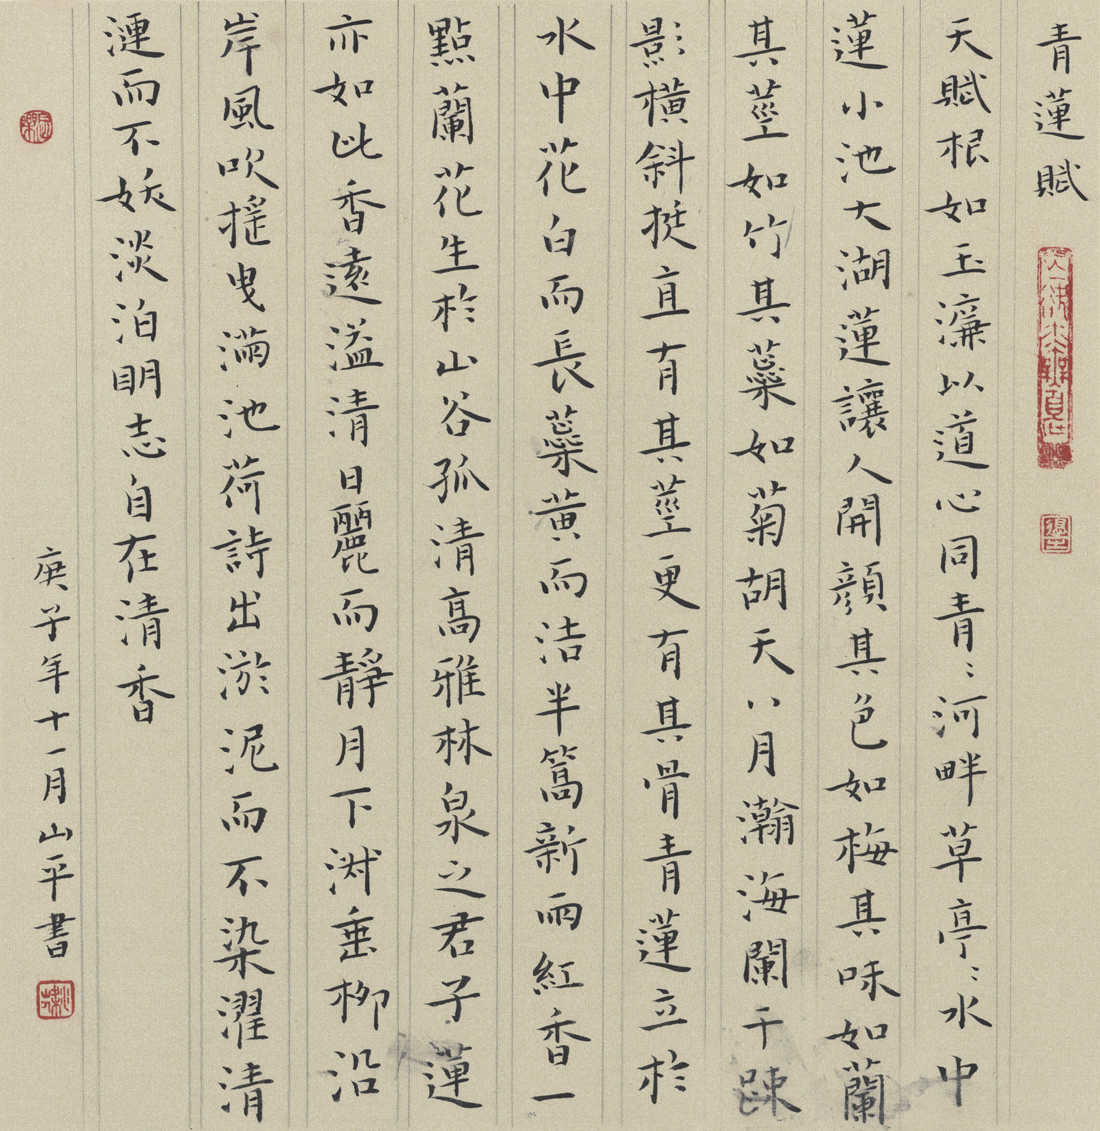 青蓮賦
天賦根如玉濂以道心同青ミ河畔草亭ミ水中
蓮小池大湖蓮讓人開顔其色如梅其味如蘭
其莖如竹其蘂如菊胡天八月瀚海闌干踈
影橫斜挺直有其莖更有其骨青蓮立於
水中花白而長蘂黄而洁半篙新雨紅香一
點蘭花生於山谷孤清高雅林泉之君子蓮
亦如此香遠溢清日麗而靜月下湖垂柳沿
岸風吹摇曳滿池荷詩出淤泥而不染濯清
漣而不妖淡泊明志自在清香
庚子年十一月山平書